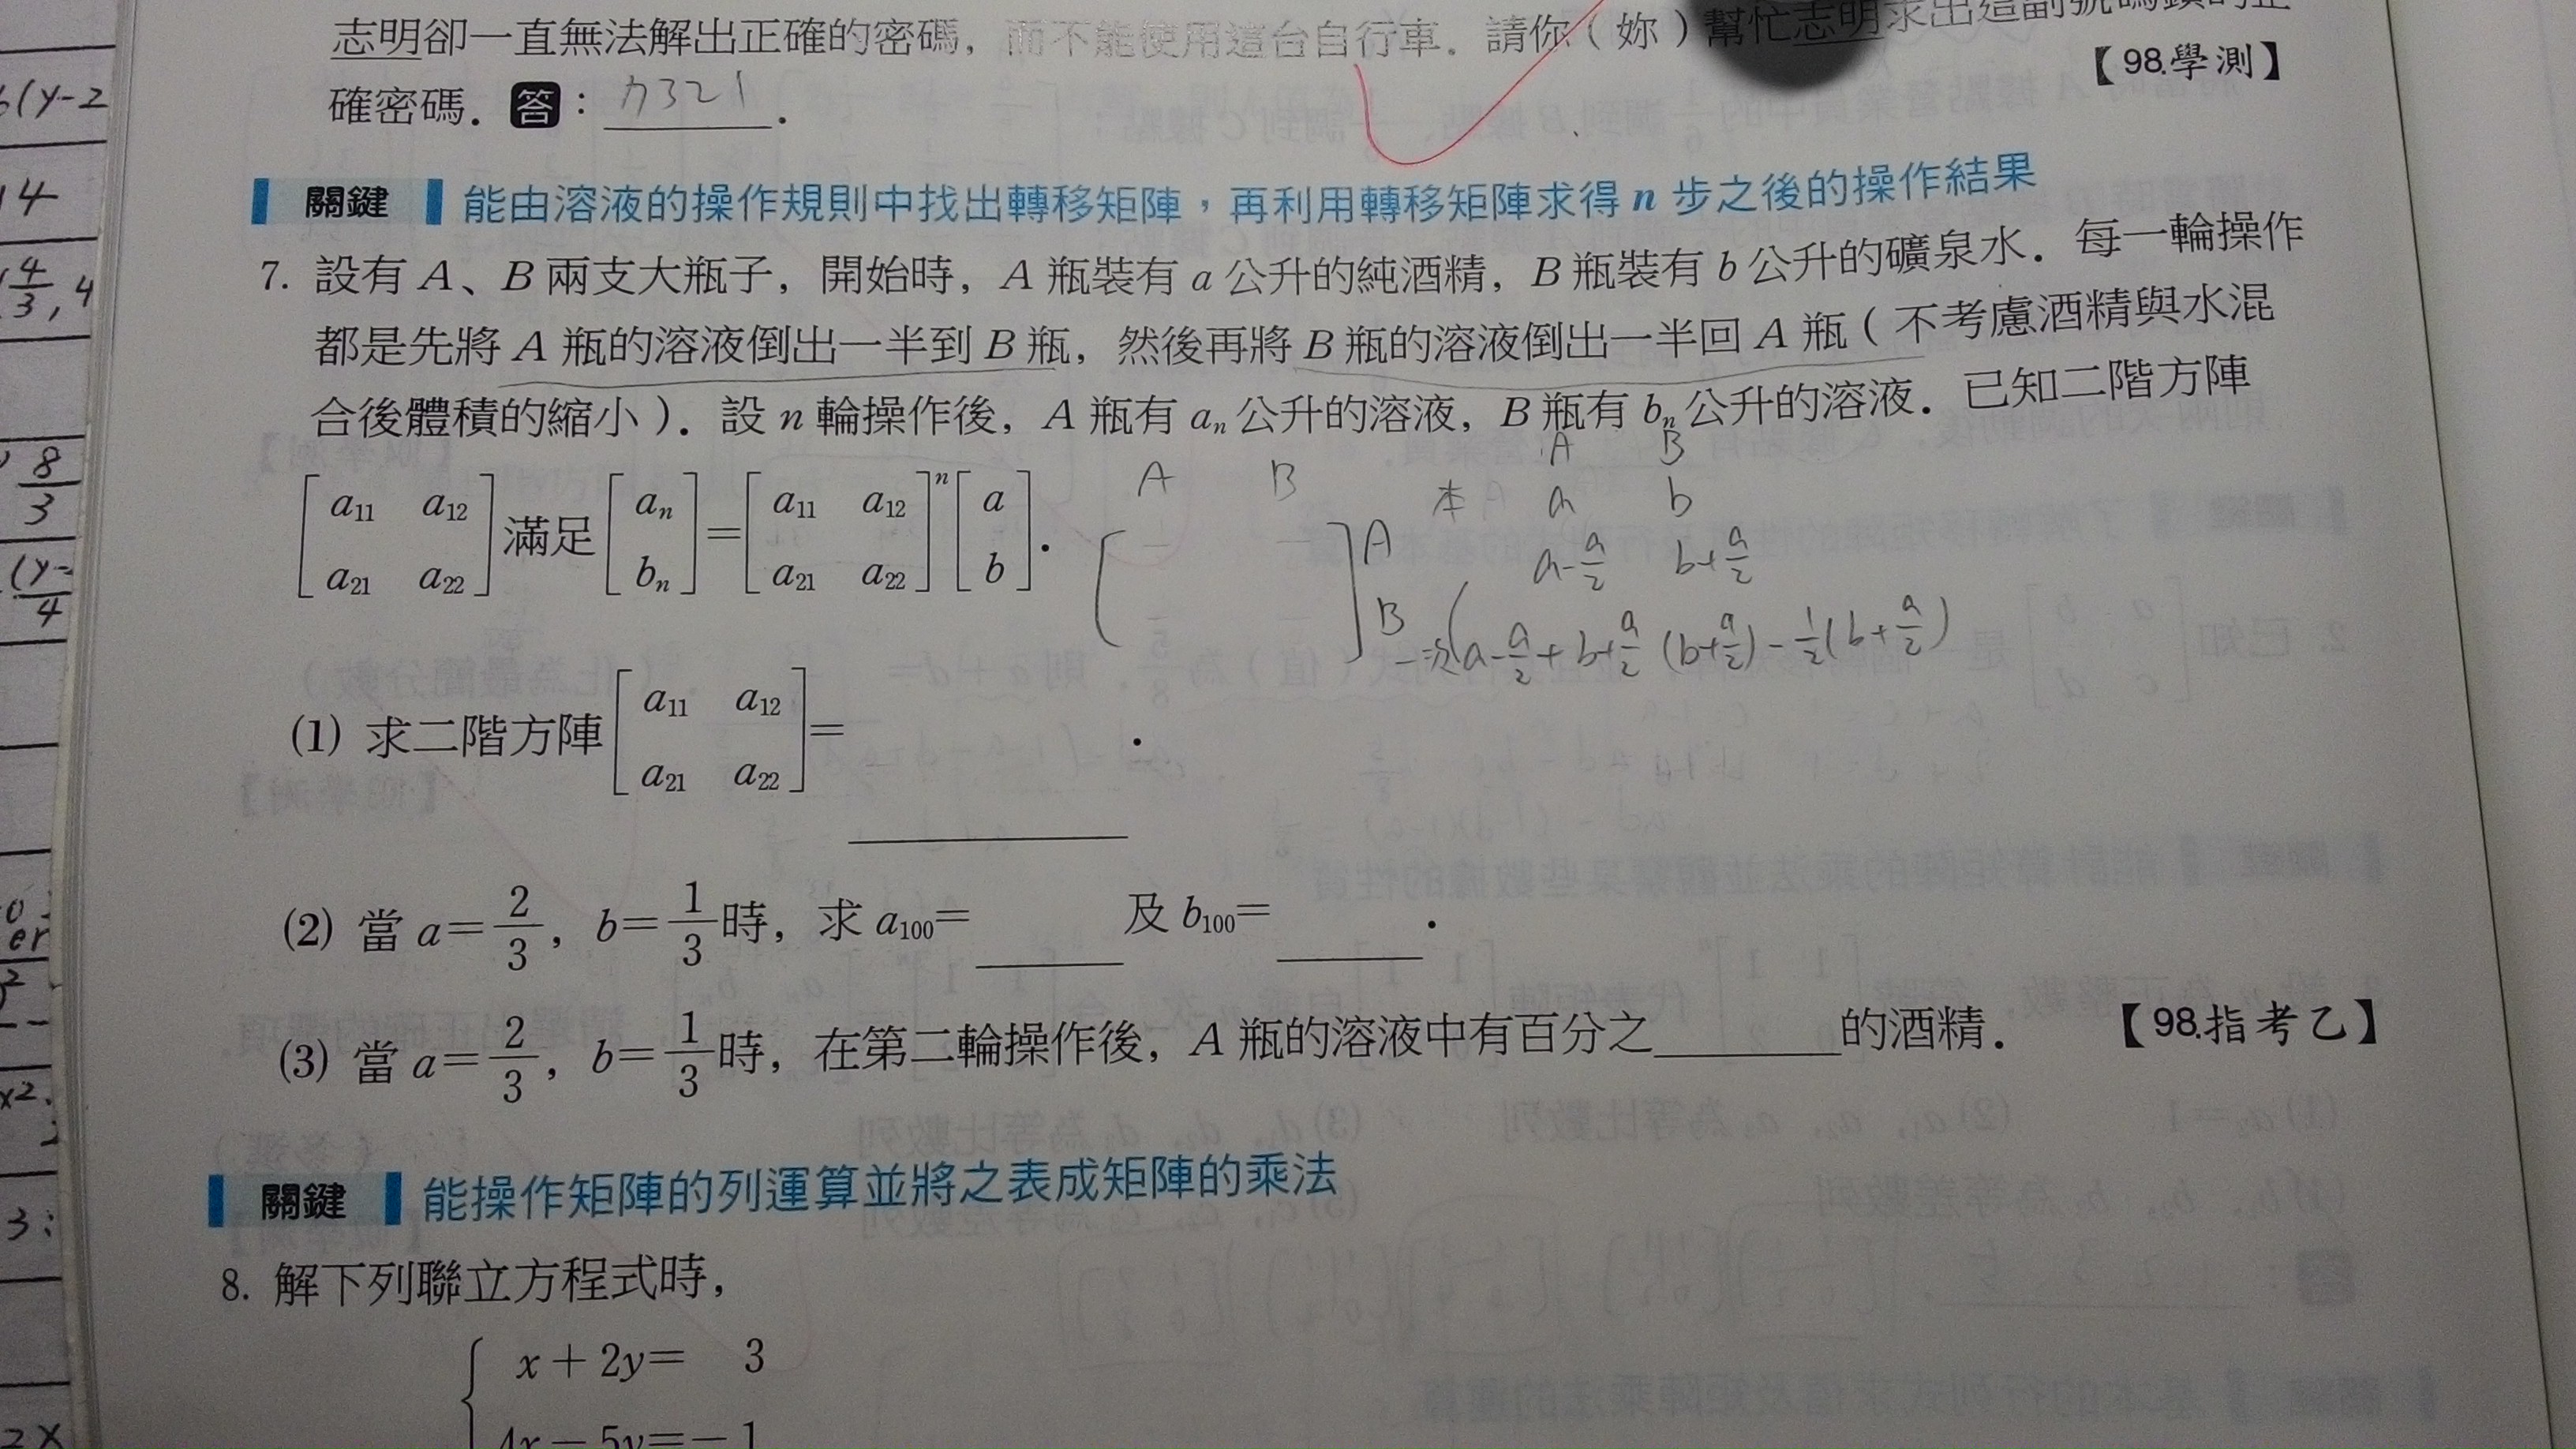 志明卻一直無法解出正確的密碼，而不能使用這台自行車．請你（妳）幫忙志明求出這副號碼鎖的正
確密碼．答：9321．
【98.學測】
關鍵 能由溶液的操作規則中找出轉移矩陣，再利用轉移矩陣求得 n 步之後的操作結果
7. 設有 A、B 兩支大瓶子，開始時，A 瓶裝有 a 公升的純酒精，B 瓶裝有 b 公升的礦泉水．每一輪操作
都是先將 A 瓶的溶液倒出一半到 B 瓶，然後再將 B 瓶的溶液倒出一半回 A 瓶（不考慮酒精與水混
合後體積的縮小）．設 n 輪操作後，A 瓶有 aₙ 公升的溶液，B 瓶有 bₙ 公升的溶液．已知二階方陣
[a₁₁ a₁₂; a₂₁ a₂₂] 滿足 [aₙ; bₙ]=[a₁₁ a₁₂; a₂₁ a₂₂]ⁿ[a; b]．
A B
A
B
A B
本 a b
a-a/2 b+a/2
一次(a-a/2+b+a/2 (b+a/2)-1/2(b+a/2)
(1) 求二階方陣 [a₁₁ a₁₂; a₂₁ a₂₂]=______．
(2) 當 a=2/3，b=1/3 時，求 a₁₀₀=______ 及 b₁₀₀=______．
(3) 當 a=2/3，b=1/3 時，在第二輪操作後，A 瓶的溶液中有百分之______的酒精． 【98.指考乙】
關鍵 能操作矩陣的列運算並將之表成矩陣的乘法
8. 解下列聯立方程式時，
x+2y= 3
4x-5y=-1
6(y-2
14
4/3, 4
8/3
(y-
4
er
2
x².
3:
2x